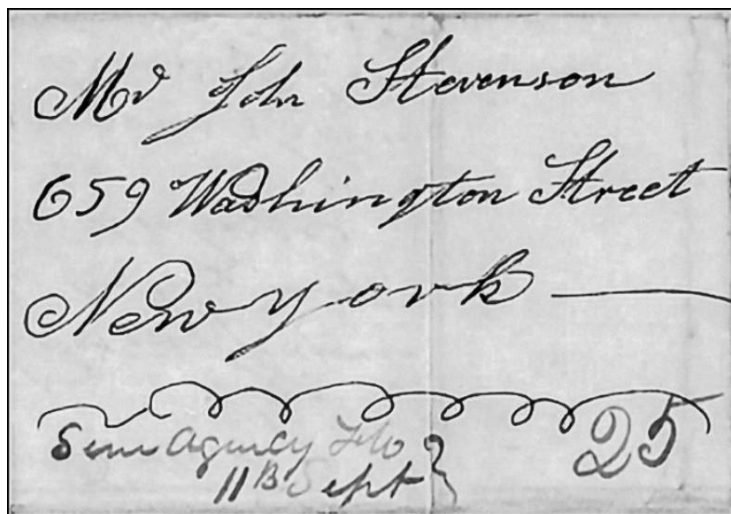 Mr John Stevenson
659 Washington Street
New York
Sem Agency Flo
11th Sept
25